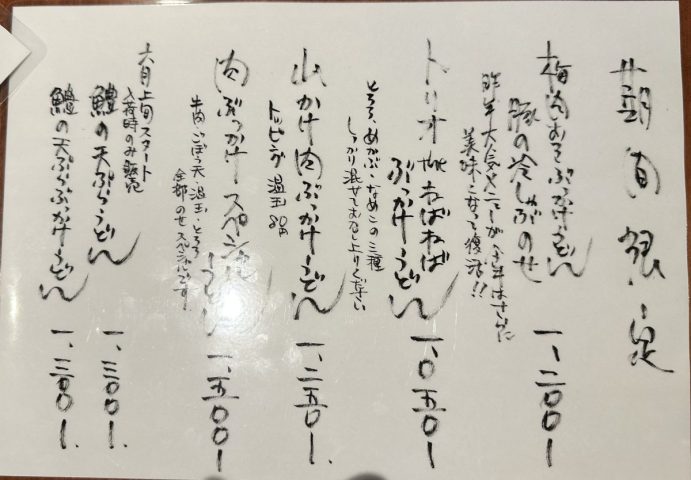 期間限定
梅肉おろぶっかけうどん
豚の冷しゃぶのせ 一、二〇〇ー
昨年大人気メニューが今年はさらに
美味しくなって復活!!
トリオ the ねばねば
ぶっかけうどん 一、〇五〇ー
とろろ、めかぶ・なめこの三種
しっかり混ぜてお召し上りください
山かけ肉ぶっかけうどん 一、二五〇ー
トッピング 温玉 80円
肉ぶっかけスペシャル
うどん 一、五〇〇ー
牛肉・ごぼう天・温玉・とろろ
全部のせスペシャルです!
六月上旬スタート
入荷時のみ販売
鱧の天ぷらうどん 一、三〇〇ー
鱧の天ぷらぶっかけうどん 一、三〇〇ー